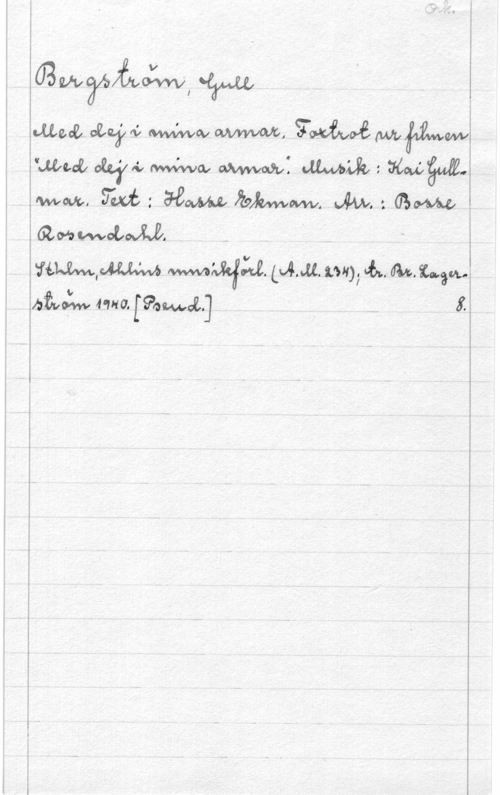 Ork.
Bergström, Gull
Med dej i mina armar. Foxtrot ur filmen
"Med dej i mina armar". Musik : Kai Gull-
mar. Text : Hasse Ekman. Arr. : Bosse
Rosendahl.
Sthlm, Ahlins musikförl. (A.M. 234); tr. Br. Lager-
ström 1940. [Pseud.] 8.